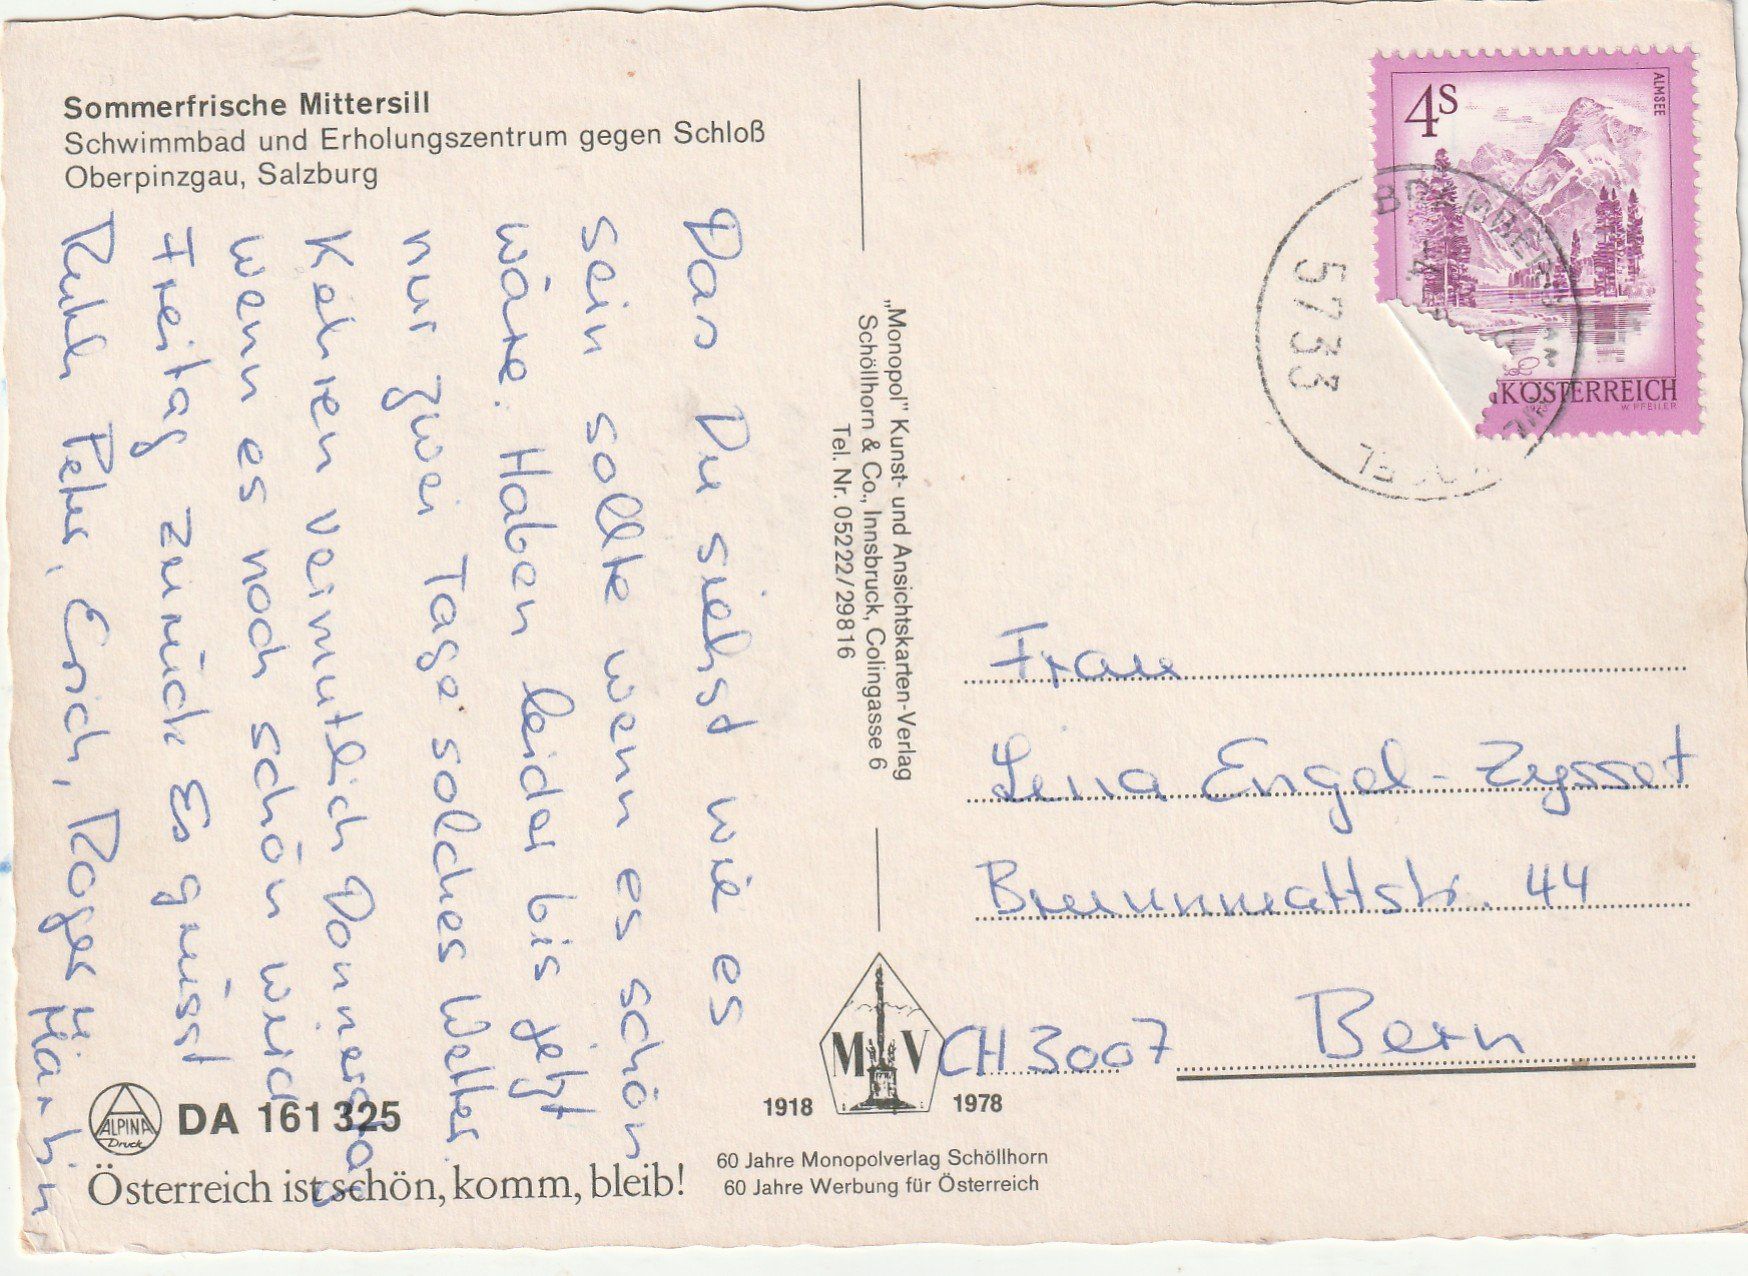 Sommerfrische Mittersill
Schwimmbad und Erholungszentrum gegen Schloß
Oberpinzgau, Salzburg
Das Du siehst wie es
sein sollte wenn es schön
wäre. Haben leider bis jetzt
nur zwei Tage solches Wetter.
Kehren vermutlich Donnerstag
wenn es noch schön wird
Freitag zurück Es grüsst
Ruth Peter, Erich, Roger u Martin
„Monopol" Kunst- und Ansichtskarten-Verlag
Schöllhorn & Co., Innsbruck, Colingasse 6
Tel. Nr. 05222/29816
4S
ALMSEE
ÖSTERREICH
W. PFEILER
5733
Frau
Lina Engel-Zysset
Brunnmattstr. 44
CH 3007 Bern
M V
1918 1978
60 Jahre Monopolverlag Schöllhorn
60 Jahre Werbung für Österreich
ALPINA
Druck
DA 161 325
Österreich ist schön, komm, bleib!